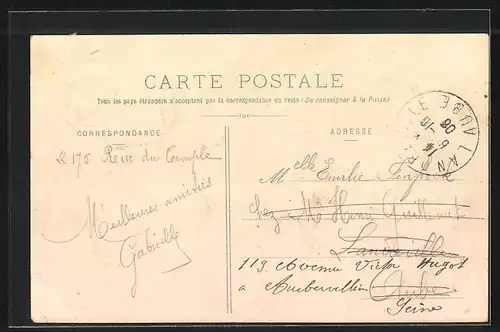 CARTE POSTALE
Tous les pays étrangers n'acceptent pas la correspondance au recto (Se renseigner à la Poste)
CORRESPONDANCE
175 Rue du Temple
Meilleures amitiés
Gabrielle
ADRESSE
Melle Emilie
chez Mr Henri Guillemet
119 Avenue Victor Hugot
a Aubervillier Aube
Seine
AUBE